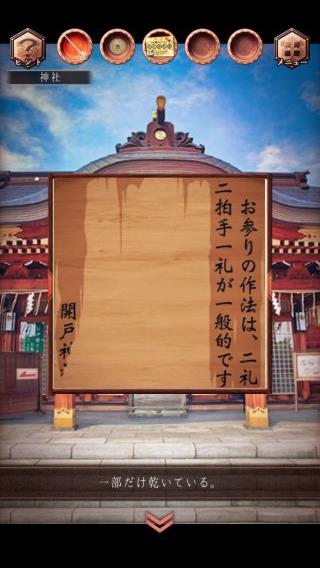 ヒント
メニュー
神社
お参りの作法は、二礼
二拍手一礼が一般的です
開戸神
一部だけ乾いている。